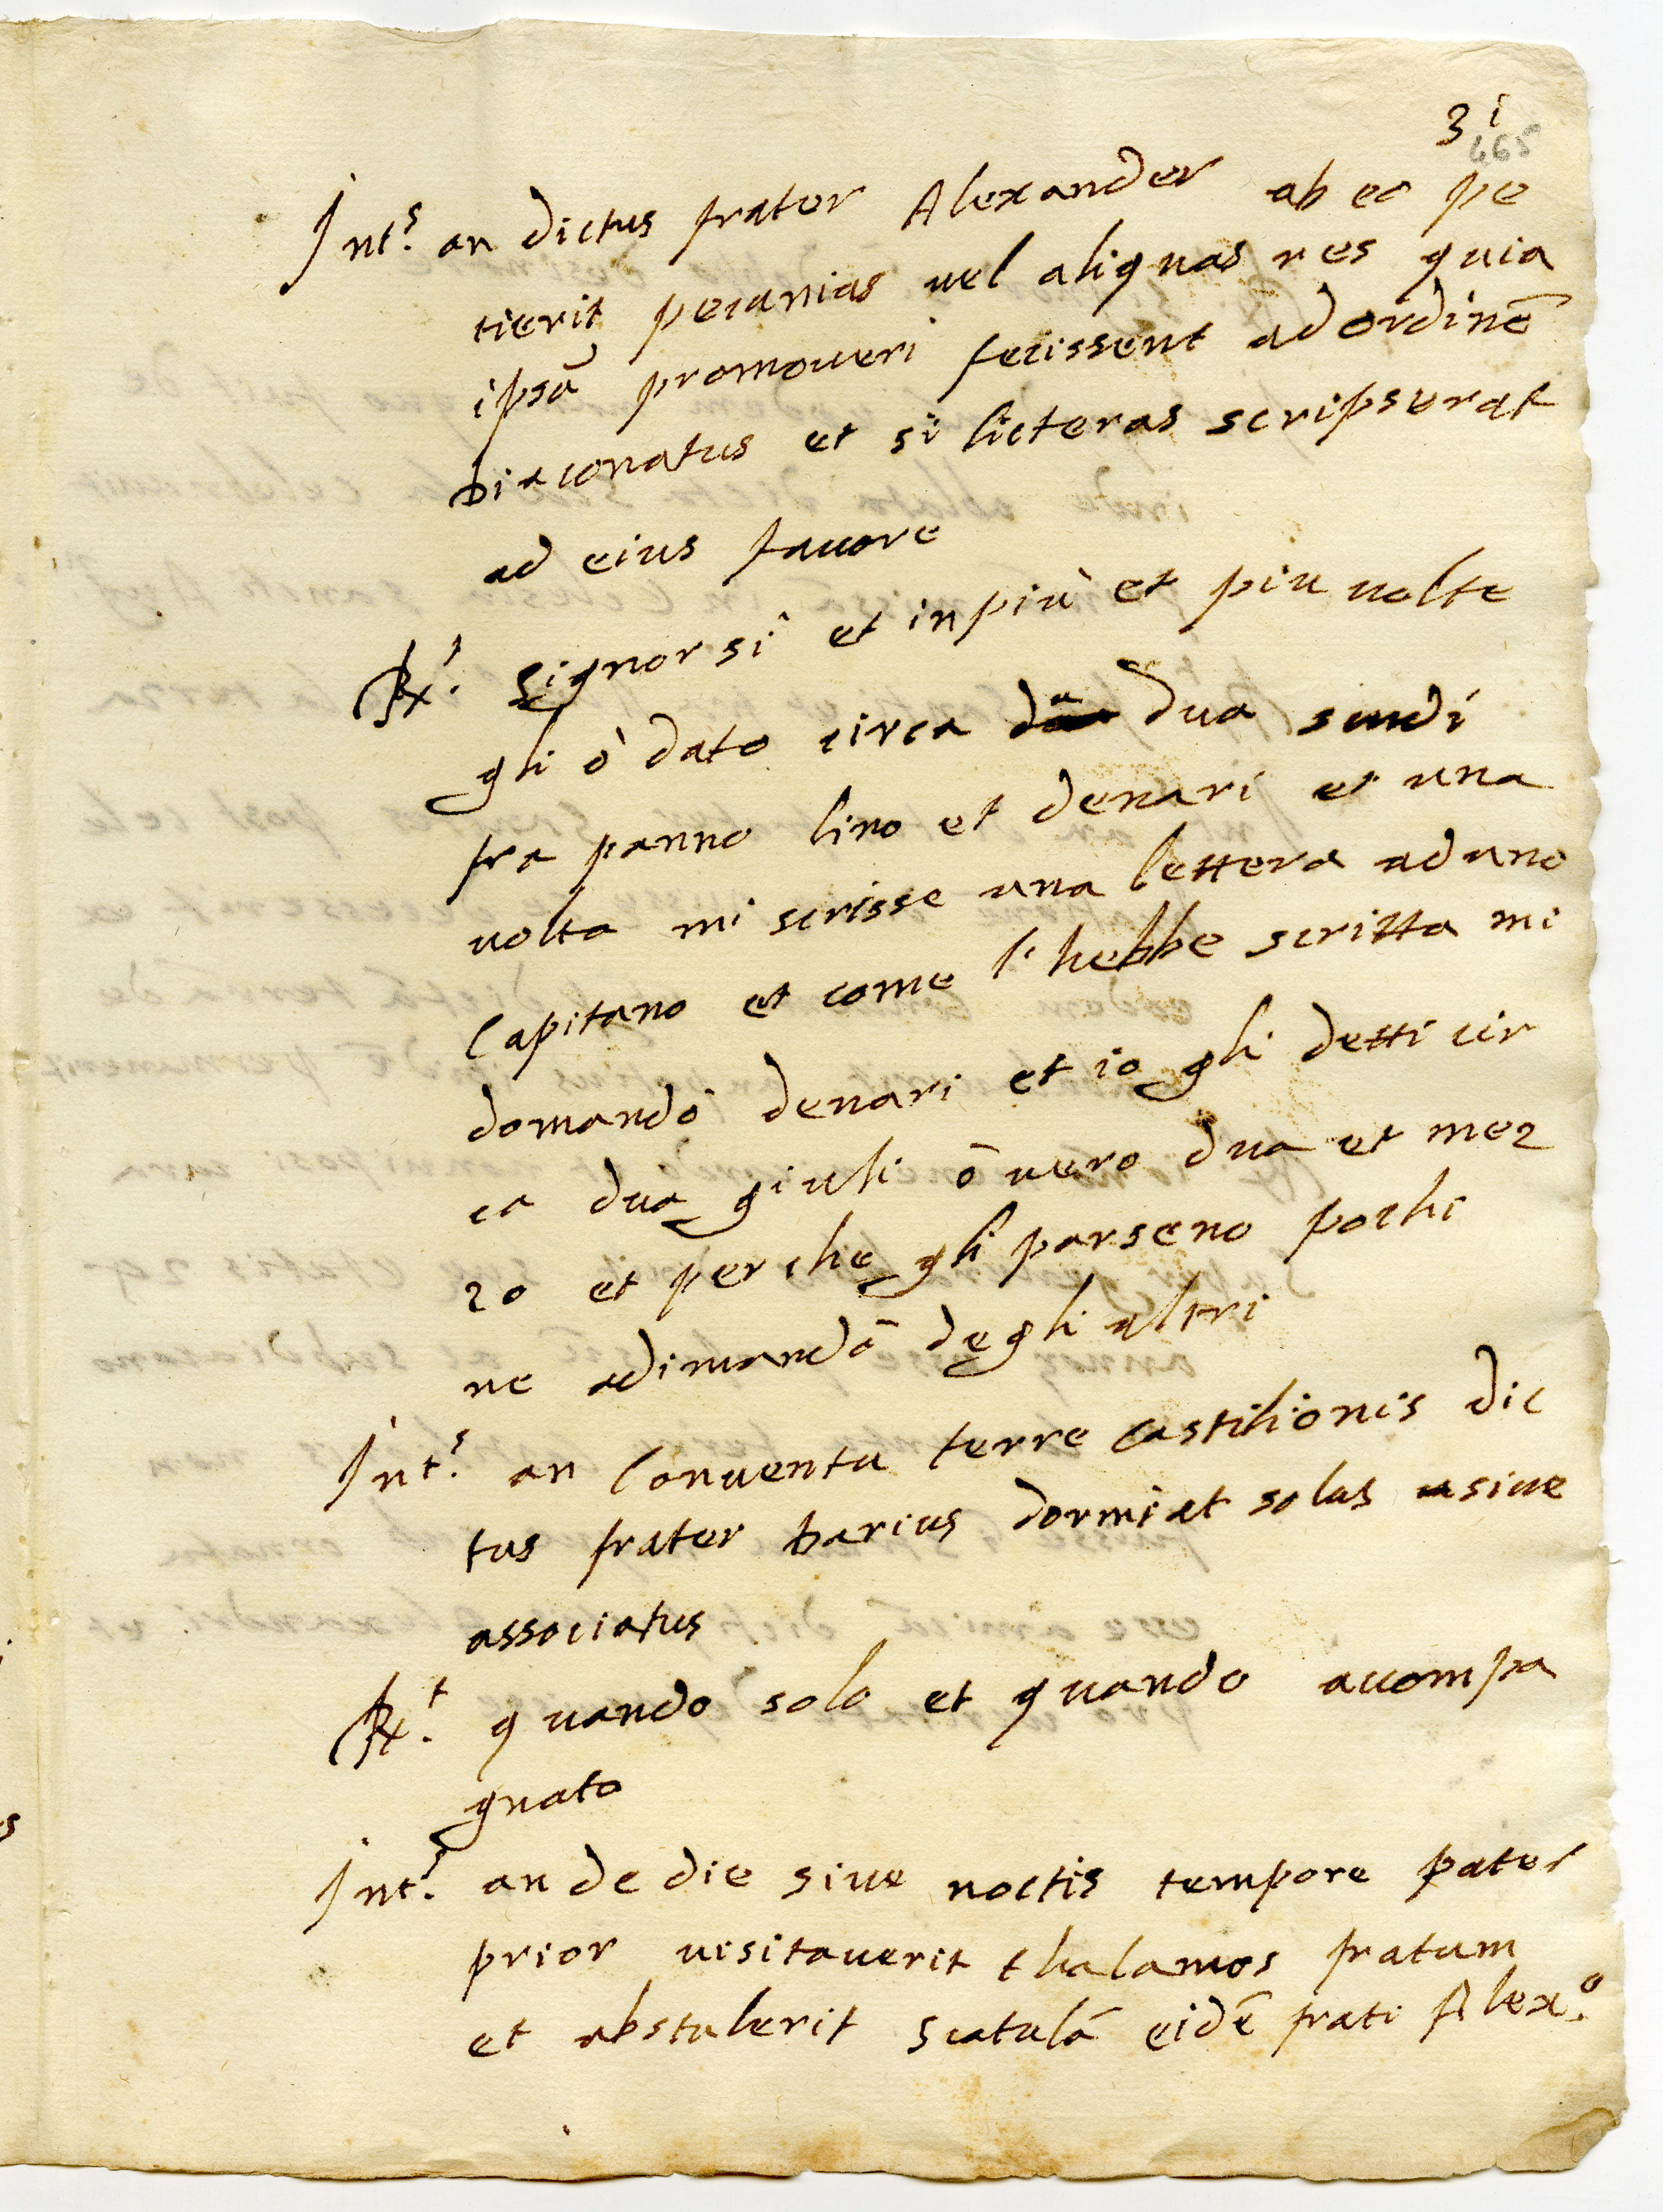 31
465
Int.s an dictus frater Alexander ab eo pe
tierit pecunias vel aliquas res quia
ipsū promoveri fecissent ad ordinē
diaconatus et si licteras scripserat
ad eius favore
Rx.t Signor si et in più et piu volte
gli ò dato circa dua scudi
fra panno lino et denari et una
volta mi scrisse una lettera ad uno
Capitano et come l'hebbe scritta mi
domandò denari et io gli detti cir
ca dua giuli ò vero dua et mez
zo et perche gli parseno pochi
ne adimandò degli altri
Int.s an Conventu terre Castilionis dic
tus frater Darius dormiat solus sive
associatus
Rx.t quando solo et quando acompa
gnato
Int.s an de die sive noctis tempore pater
prior visitaverit thalamos fratum
et abstulerit scatulā eidē frati Alex.o